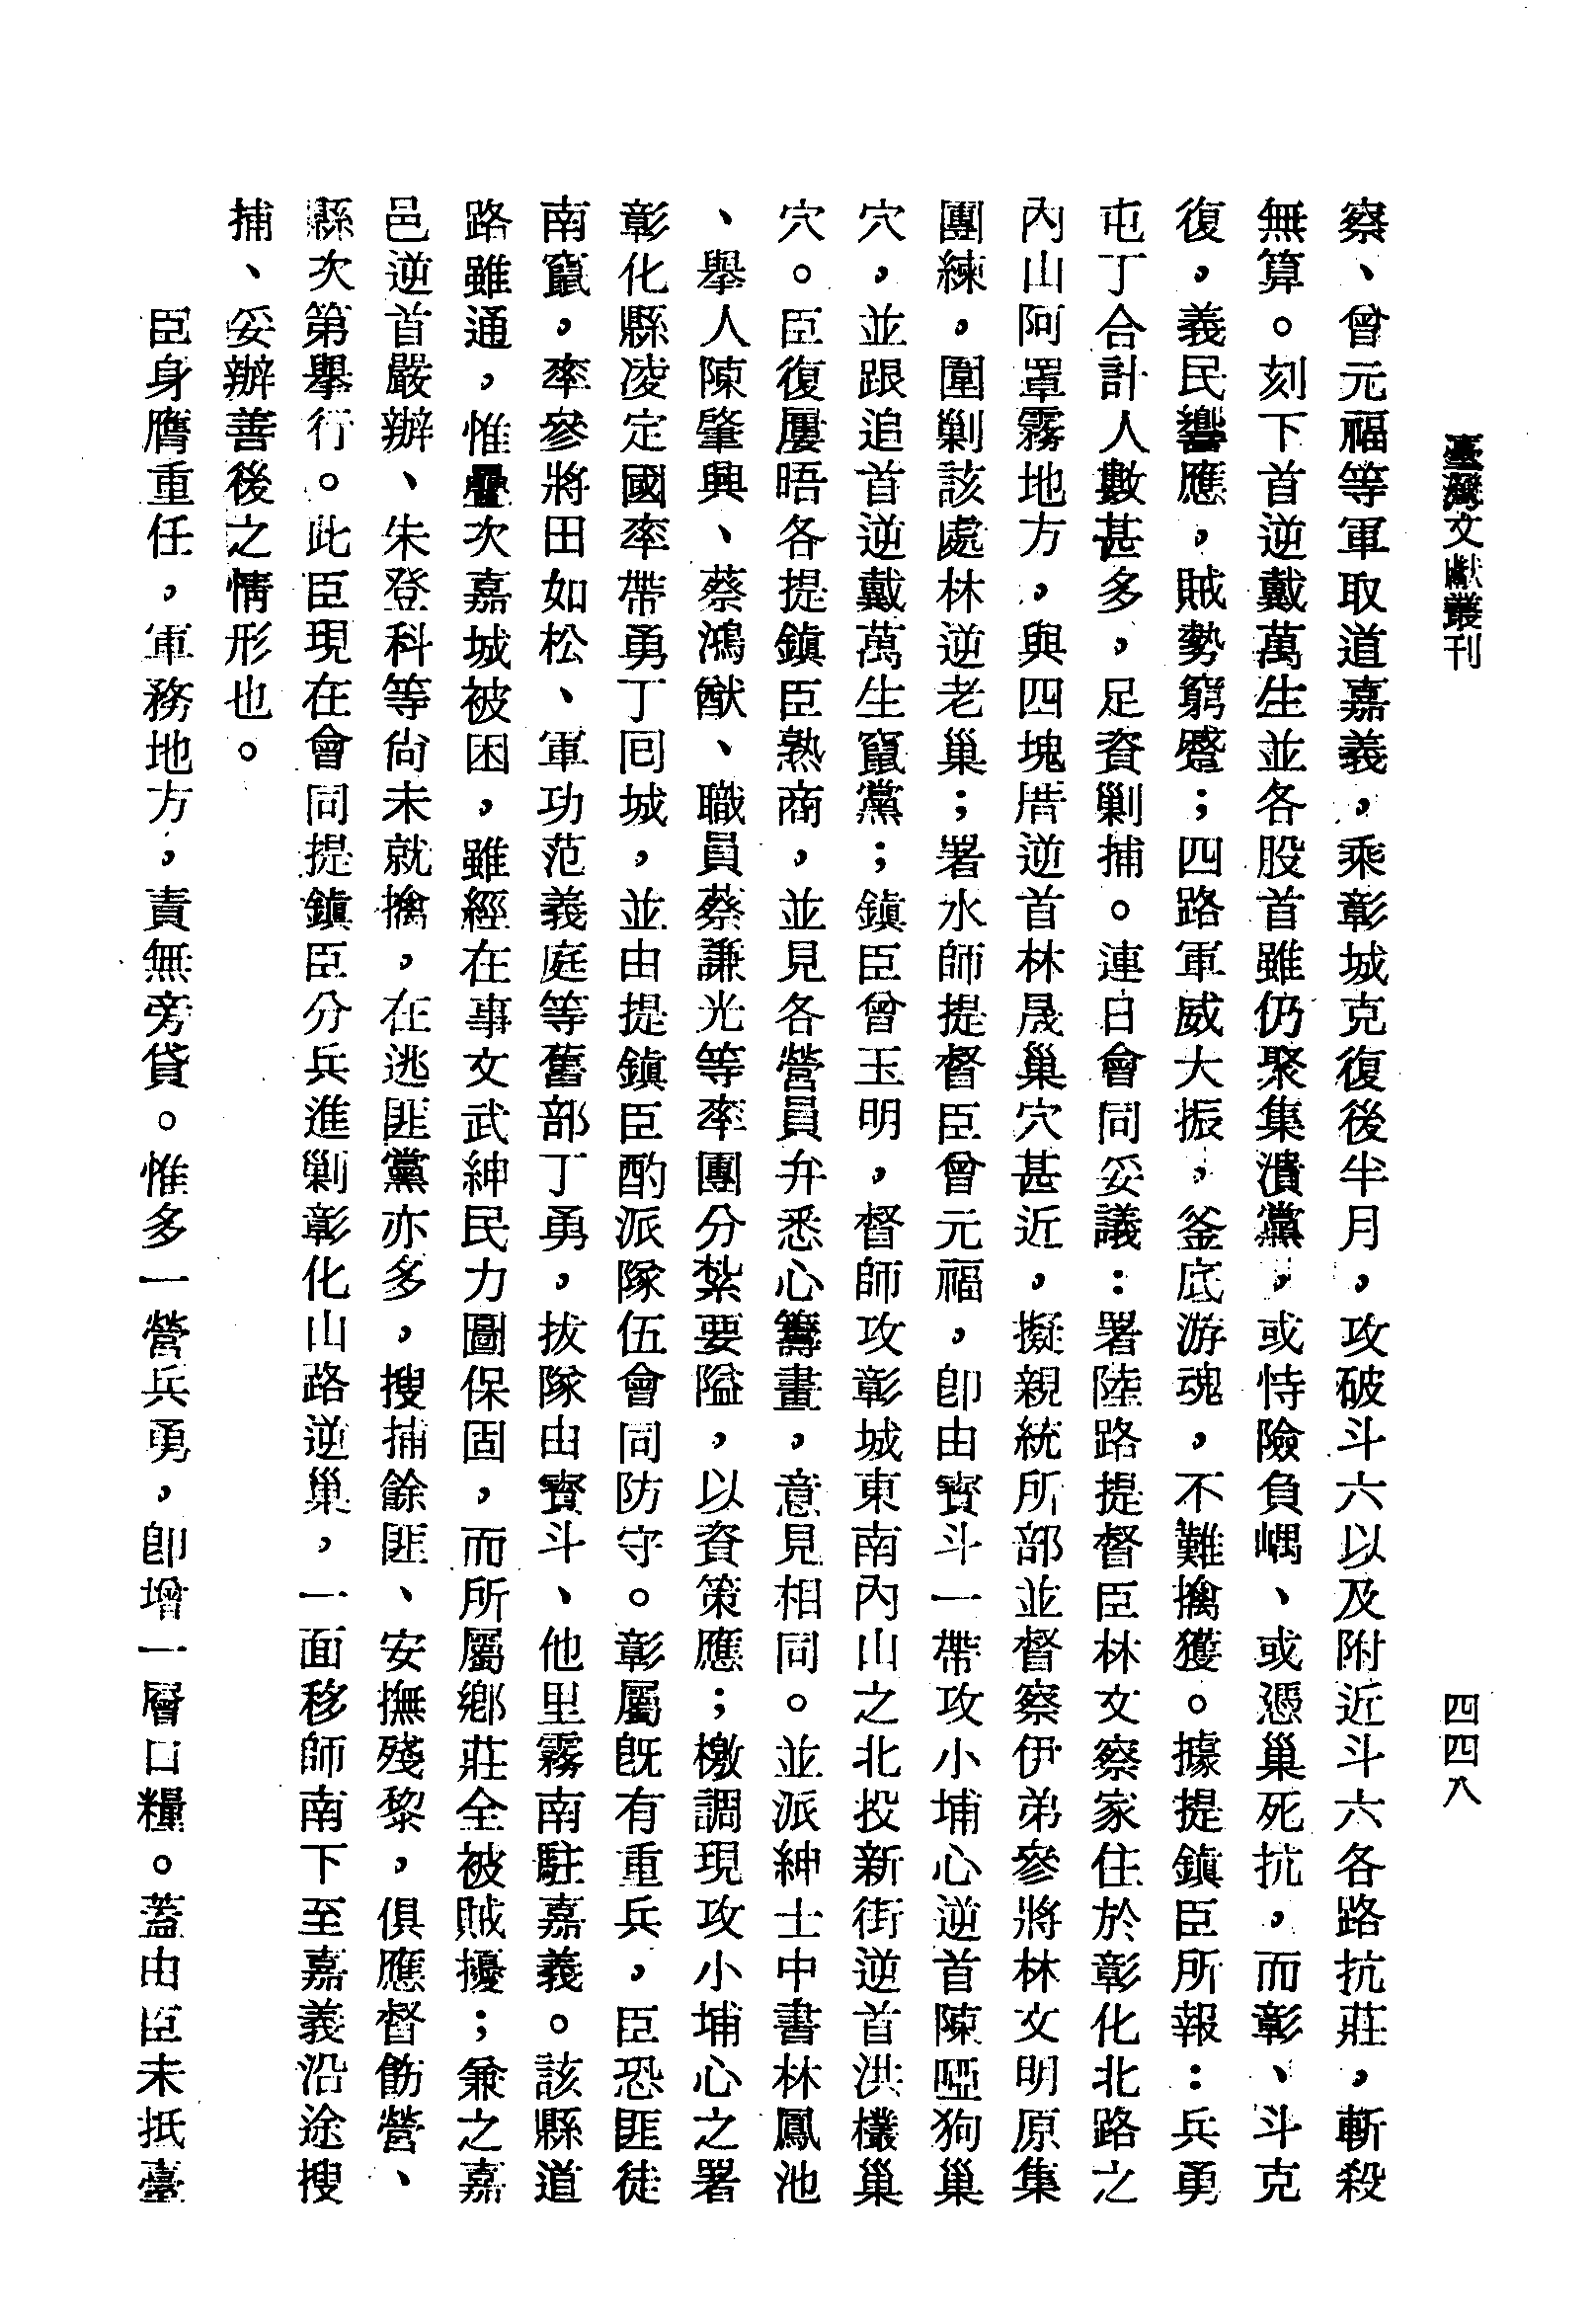 臺灣文獻叢刊
四四八
察、曾元福等軍取道嘉義,乘彰城克復後半月,攻破斗六以及附近斗六各路抗莊,斬殺
無算。刻下首逆戴萬生並各股首雖仍聚集潰黨,或恃險負嵎、或憑巢死抗,而彰、斗克
復,義民響應,賊勢窮蹙;四路軍威大振,釜底游魂,不難擒獲。據提鎮臣所報:兵勇
屯丁合計人數甚多,足資剿捕。連日會同妥議:署陸路提督臣林文察家住於彰化北路之
內山阿罩霧地方,與四塊厝逆首林晟巢穴甚近,擬親統所部並督察伊弟參將林文明原集
團練,圍剿該處林逆老巢;署水師提督臣曾元福,卽由寶斗一帶攻小埔心逆首陳啞狗巢
穴,並跟追首逆戴萬生竄黨;鎮臣曾玉明,督師攻彰城東南內山之北投新街逆首洪欉巢
穴。臣復屢晤各提鎮臣熟商,並見各營員弁悉心籌畫,意見相同。並派紳士中書林鳳池
、舉人陳肇興、蔡鴻猷、職員蔡謙光等率團分紮要隘,以資策應;檄調現攻小埔心之署
彰化縣凌定國率帶勇丁囘城,並由提鎮臣酌派隊伍會同防守。彰屬旣有重兵,臣恐匪徒
南竄,率參將田如松、軍功范義庭等舊部丁勇,拔隊由寶斗、他里霧南駐嘉義。該縣道
路雖通,惟疊次嘉城被困,雖經在事文武紳民力圖保固,而所屬鄉莊全被賊擾;兼之嘉
邑逆首嚴辦、朱登科等尙未就擒,在逃匪黨亦多,搜捕餘匪、安撫殘黎,俱應督飭營、
縣次第舉行。此臣現在會同提鎮臣分兵進剿彰化山路逆巢,一面移師南下至嘉義沿途搜
捕、妥辦善後之情形也。
臣身膺重任,軍務地方,責無旁貸。惟多一營兵勇,卽增一層口糧。蓋由臣未抵臺